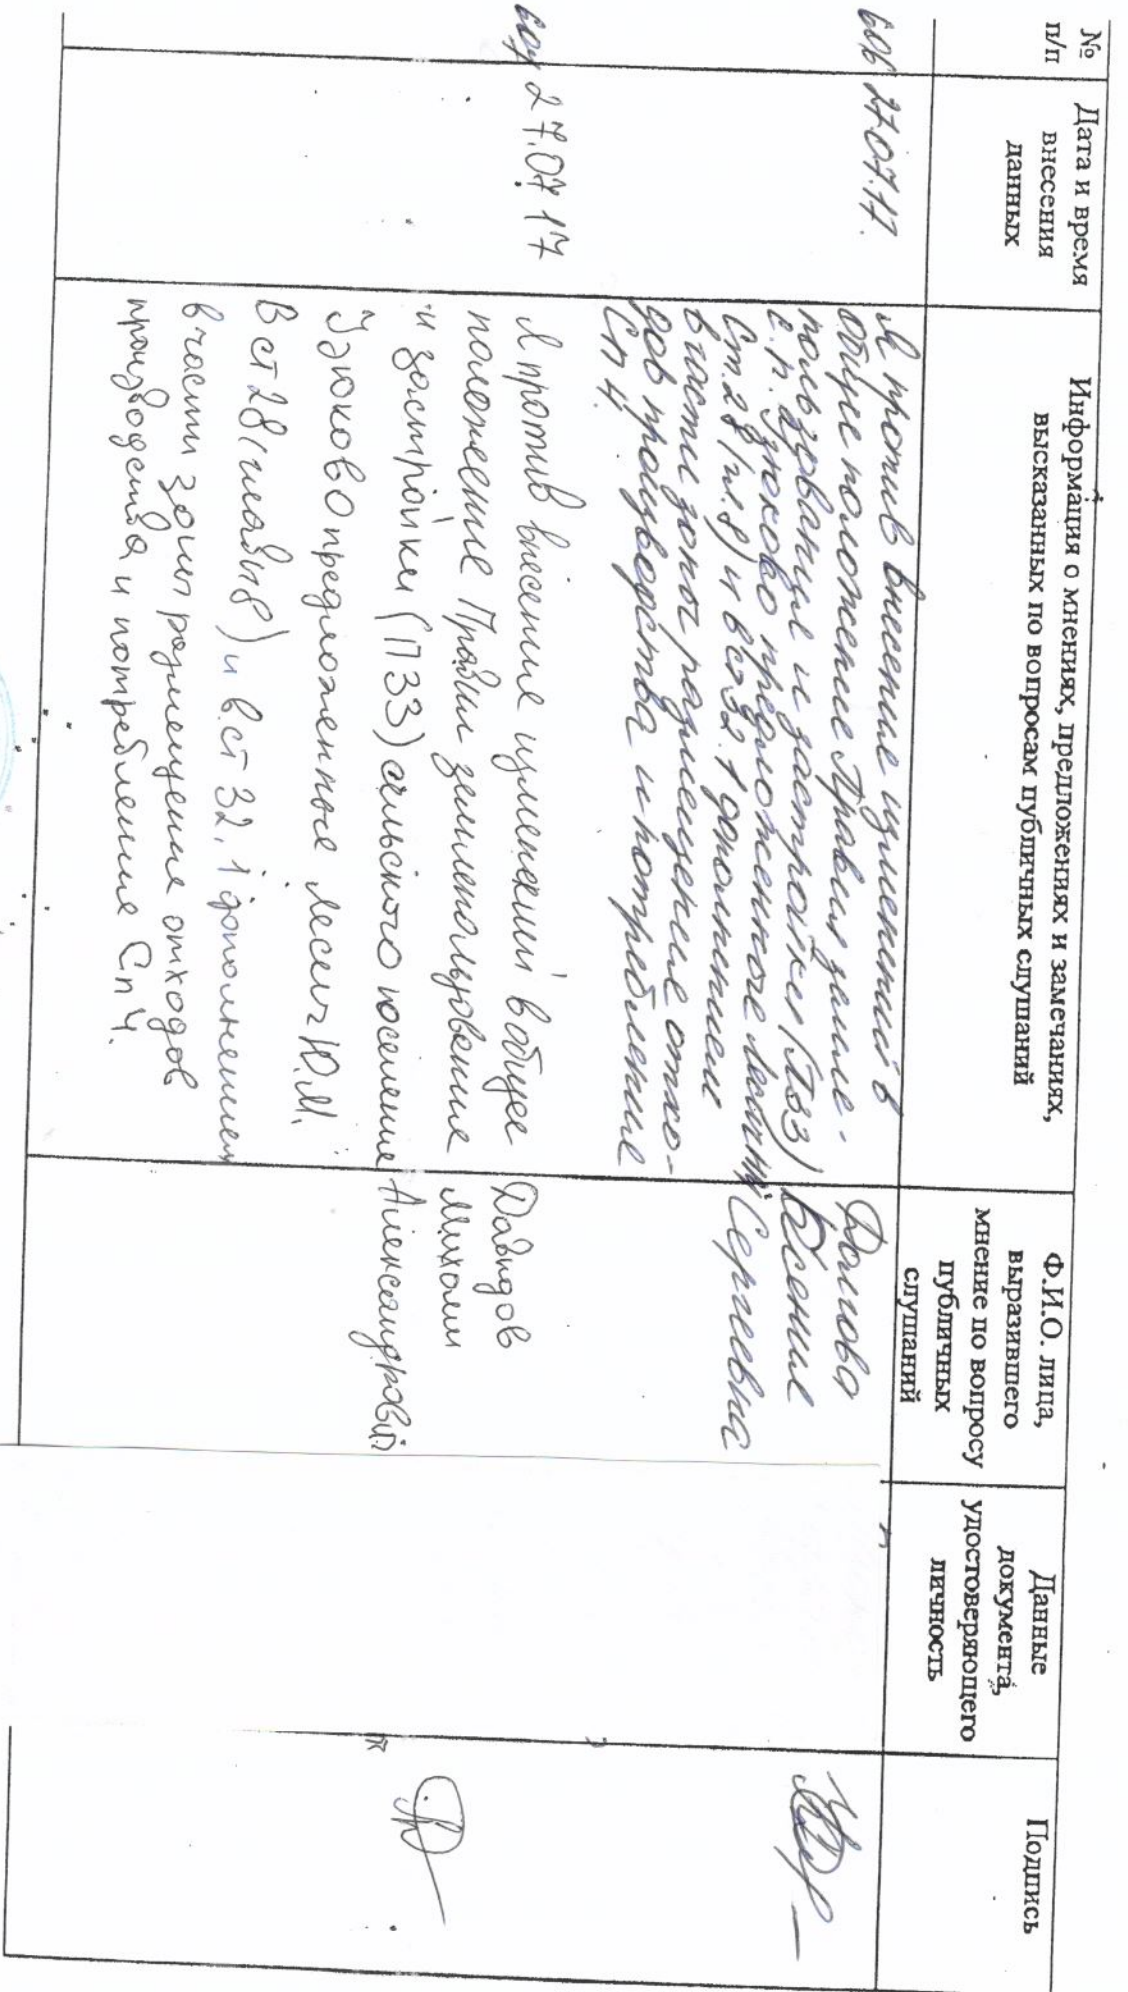 № п/п
Дата и время внесения данных
Информация о мнениях, предложениях и замечаниях, высказанных по вопросам публичных слушаний
Ф.И.О. лица, выразившего мнение по вопросу публичных слушаний
Данные документа, удостоверяющего личность
Подпись
606
27.07.17.
Я против внесение изменений в
общее положение Правил земле-
пользование и застройки (ПЗЗ)
с.п. Узюково предложенное
Ст. 28 (гл. 8) и в ст 32.1 дополнением
в части зоны размещение отхо-
дов производства и потребление
Сп 4.
Долгова
Ксения
Сергеевна
607
27.07 17
Я против внесение изменений в общее
положение Правил землепользование
и застройки (ПЗЗ) сельского поселение
Узюково предложенные Лесич Ю.М.
В ст 28 (глава 8) и в ст 32.1 дополнением
в части зоны размещение отходов
производства и потребление Сп 4.
Давыдов
Михаил
Александрович